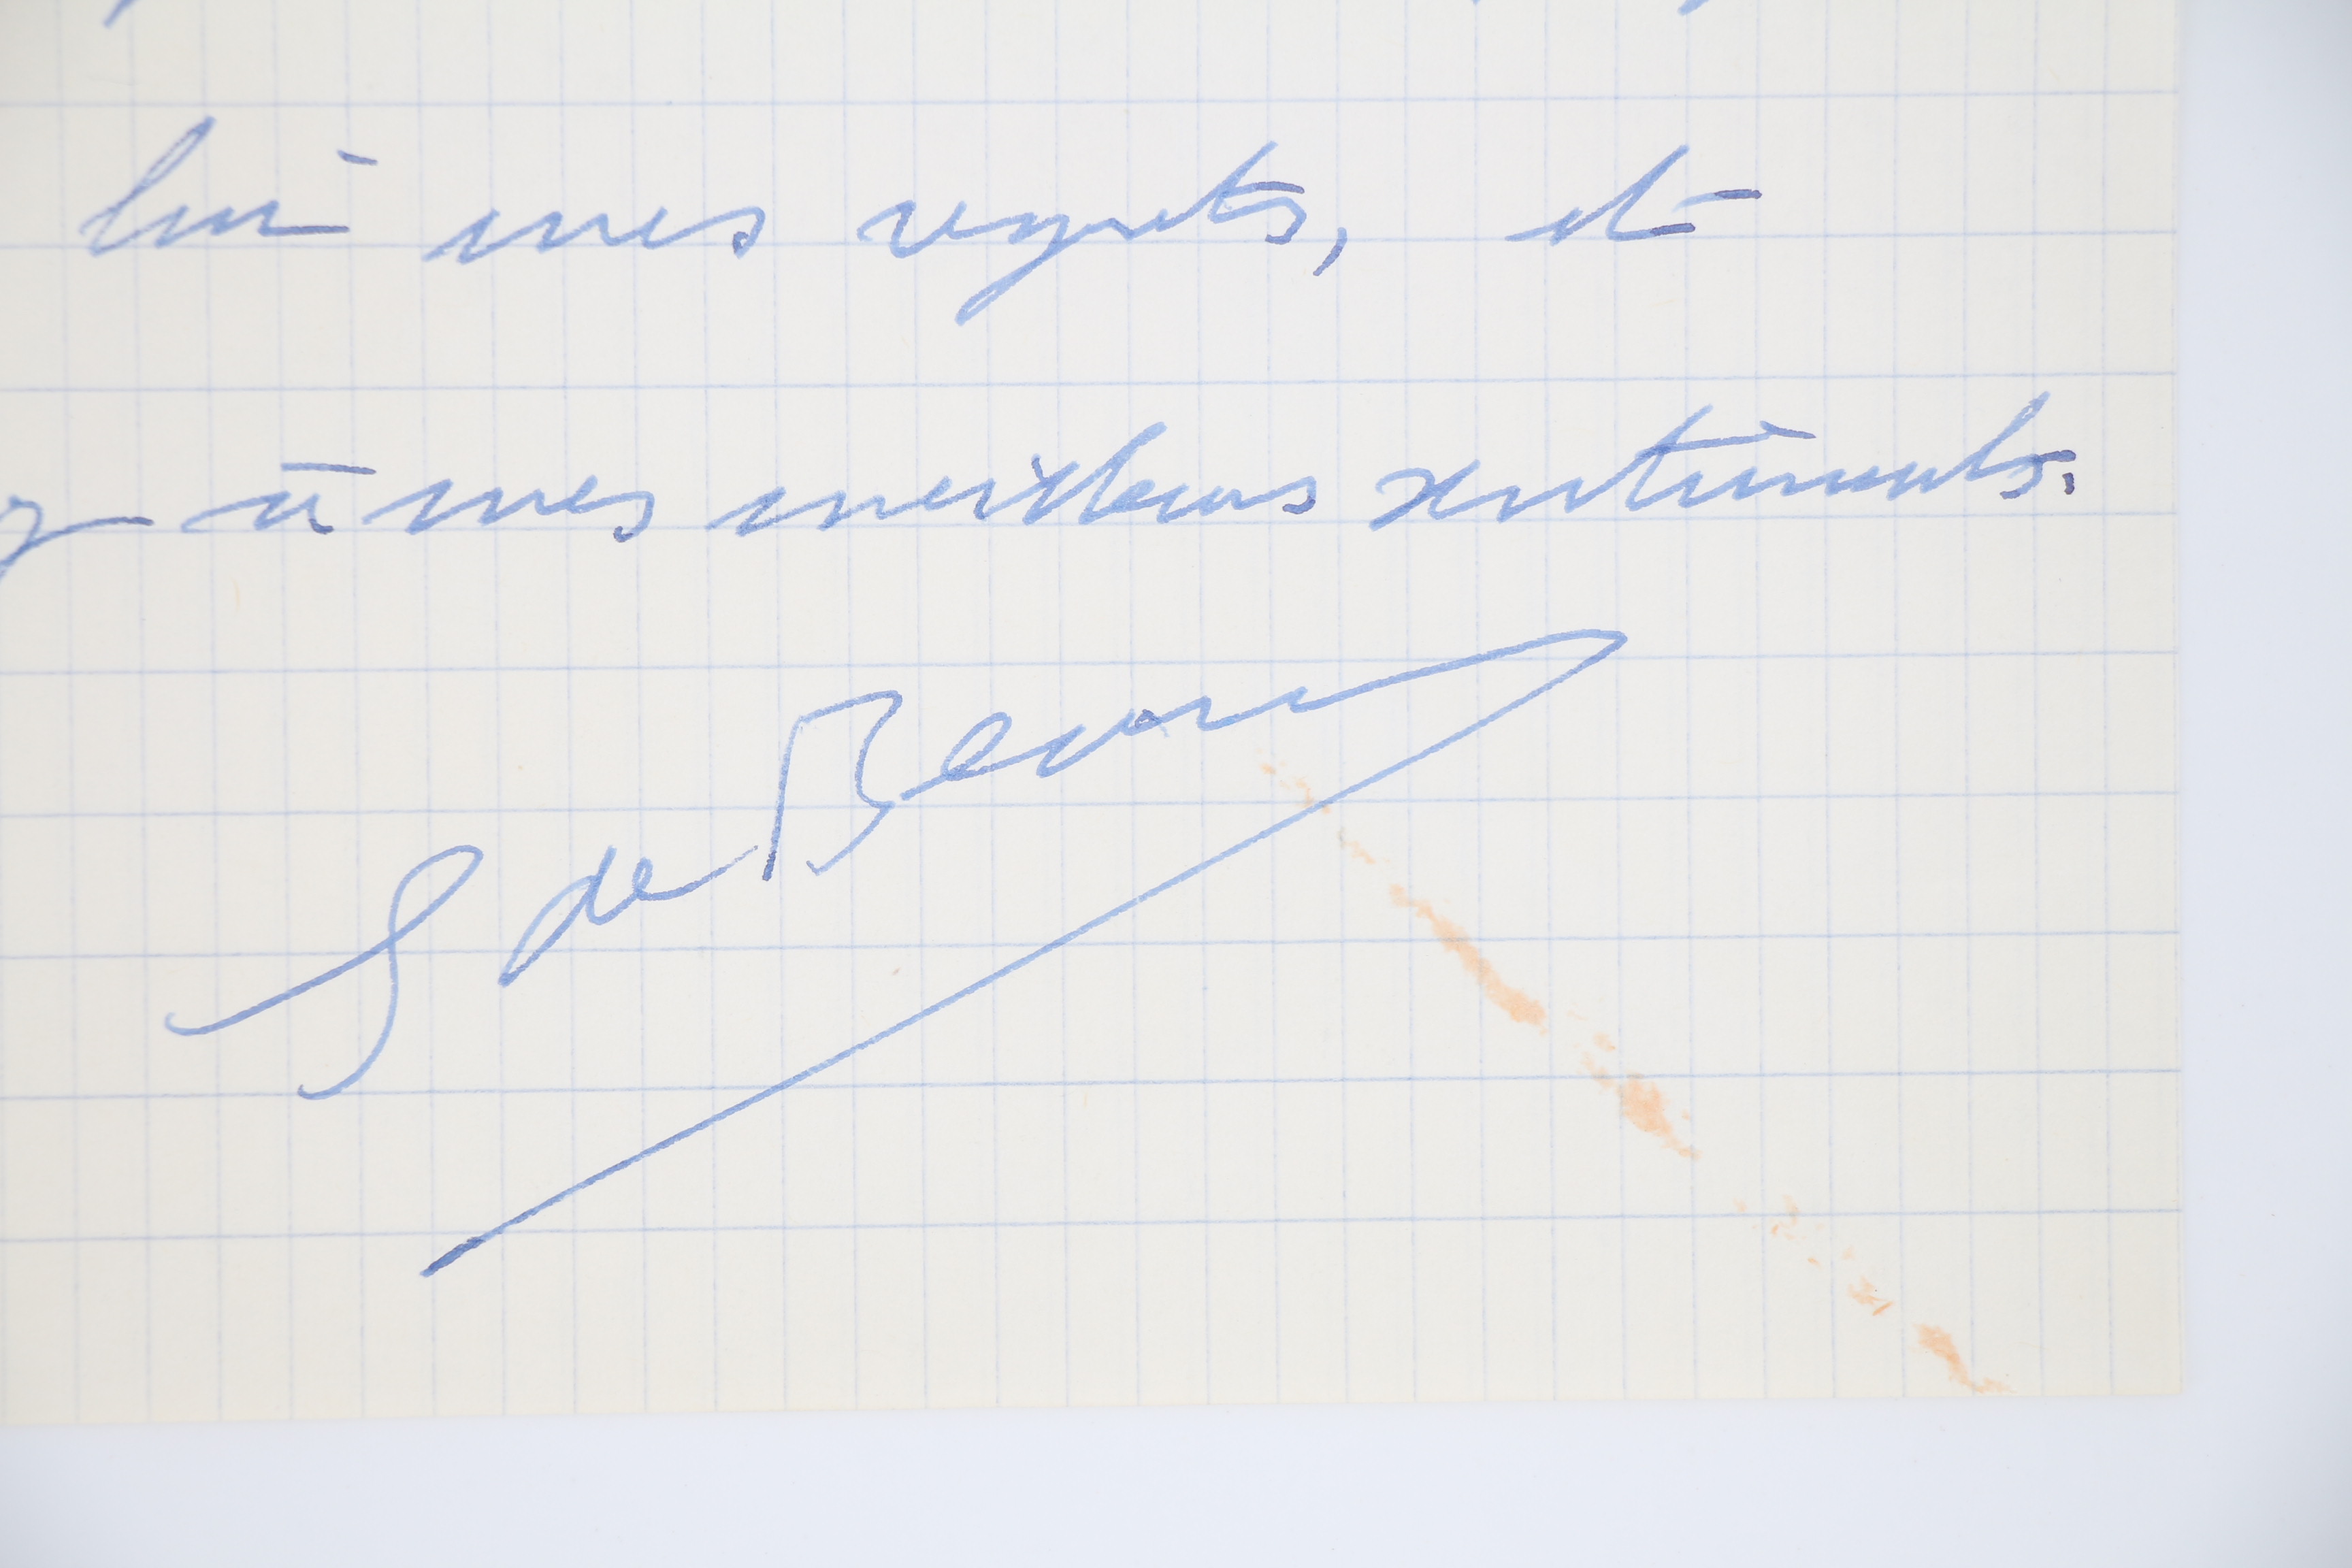 lui mes regrets, et
à mes meilleurs sentiments.
S de Beauvoir